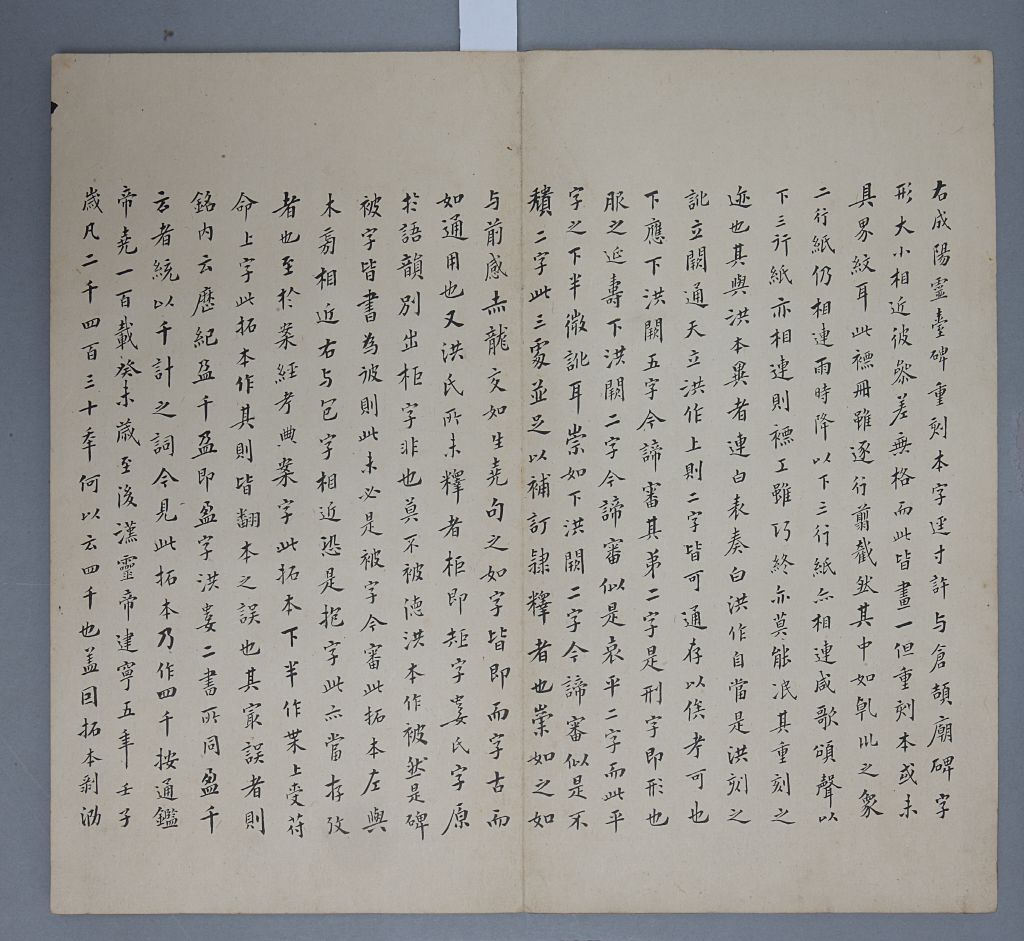 右成陽靈臺碑重刻本字逕寸許与倉頡廟碑字
形大小相近彼參差無格而此皆畫一但重刻本或未
具界紋耳此褾冊雖逐行翦截然其中如乹巛之象
二行紙仍相連雨時降以下三行紙亦相連咸歌頌聲以
下三行紙亦相連則褾工雖巧終亦莫能泯其重刻之
迹也其與洪本異者連白表奏白洪作自當是洪刻之
訛立闕通天立洪作上則二字皆可通存以俟考可也
下應下洪闕五字今諦審其弟二字是刑字即形也
服之延壽下洪闕二字今諦審似是哀平二字而此平
字之下半微訛耳崇如下洪闕二字今諦審似是不
穨二字此三處並足以補訂隸釋者也崇如之如
与前感赤龍交如生堯句之如字皆即而字古而
如通用也又洪氏所未釋者柜即矩字婁氏字原
於語韻別出柜字非也莫不被德洪本作被然是碑
被字皆書為彼則此未必是被字今審此拓本左與
木旁相近右与包字相近恐是抱字此亦當存攷
者也至於案經考典案字此拓本下半作業上受苻
命上字此拓本作其則皆翻本之誤也其寂誤者則
銘内云歷紀盈千盈即盈字洪婁二書所同盈千
云者統以千計之詞今見此拓本乃作四千按通鑑
帝堯一百載癸未歲至後漢靈帝建寧五年壬子
歲凡二千四百三十年何以云四千也盖因拓本剥泐